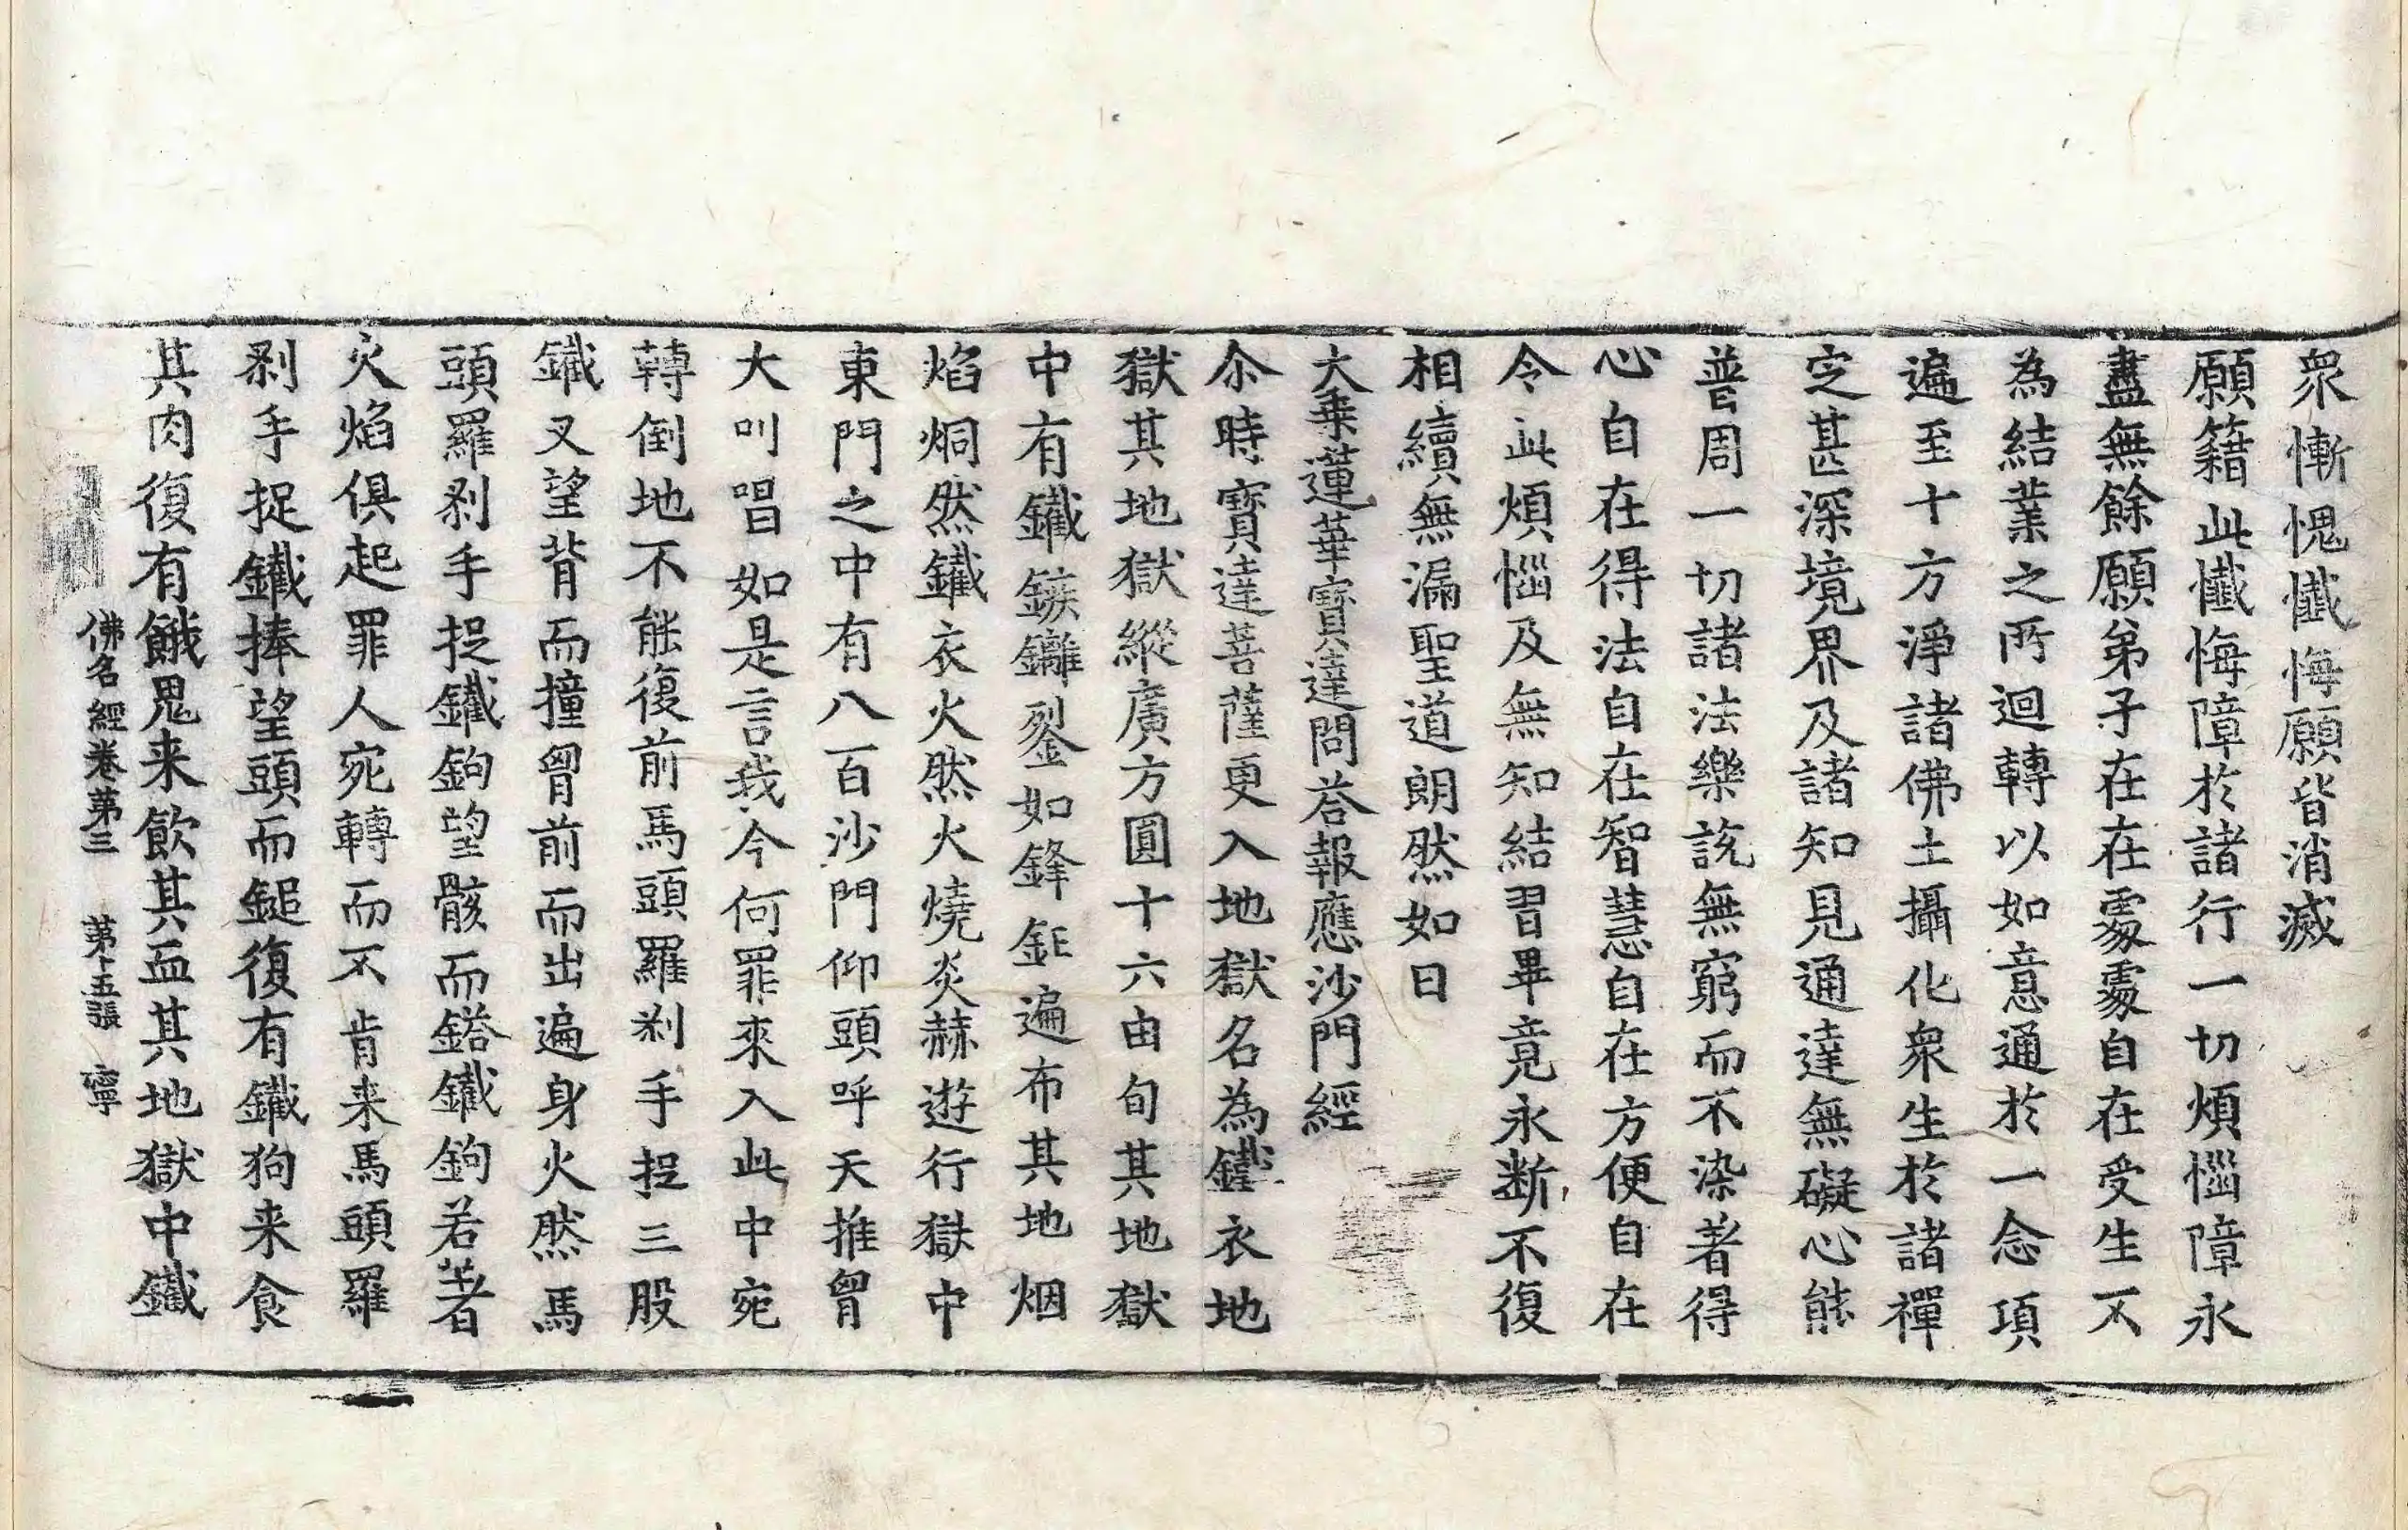 衆慚愧懺悔願皆消滅
願籍此懺悔障於諸行一切煩惱障永
盡無餘願弟子在在處處自在受生不
為結業之所迴轉以如意通於一念項
遍至十方淨諸佛土攝化衆生於諸禪
定甚深境界及諸知見通達無礙心能
普周一切諸法樂說無窮而不染著得
心自在得法自在智慧自在方便自在
令此煩惱及無知結習畢竟永断不復
相續無漏聖道朗然如日
大乗蓮華寳達問荅報應沙門經
尒時寳達菩薩更入地獄名為鐵衣地
獄其地獄縱廣方圓十六由旬其地獄
中有鐵鏃鑗鋫如鋒鉅遍布其地烟
焰烔然鐵衣火然火燒炎赫遊行獄中
東門之中有八百沙門仰頭呼天推胷
大叫唱如是言我今何罪來入此中宛
轉倒地不能復前馬頭羅剎手捉三股
鐵叉望背而撞胷前而出遍身火然馬
頭羅剎手捉鐵鉤望骸而鎝鐵鉤若著
火焰俱起罪人宛轉而不肯来馬頭羅
剎手捉鐵捧望頭而鎚復有鐵狗来食
其肉復有餓鬼来飲其血其地獄中鐵
佛名經卷第三 第十五張 寧